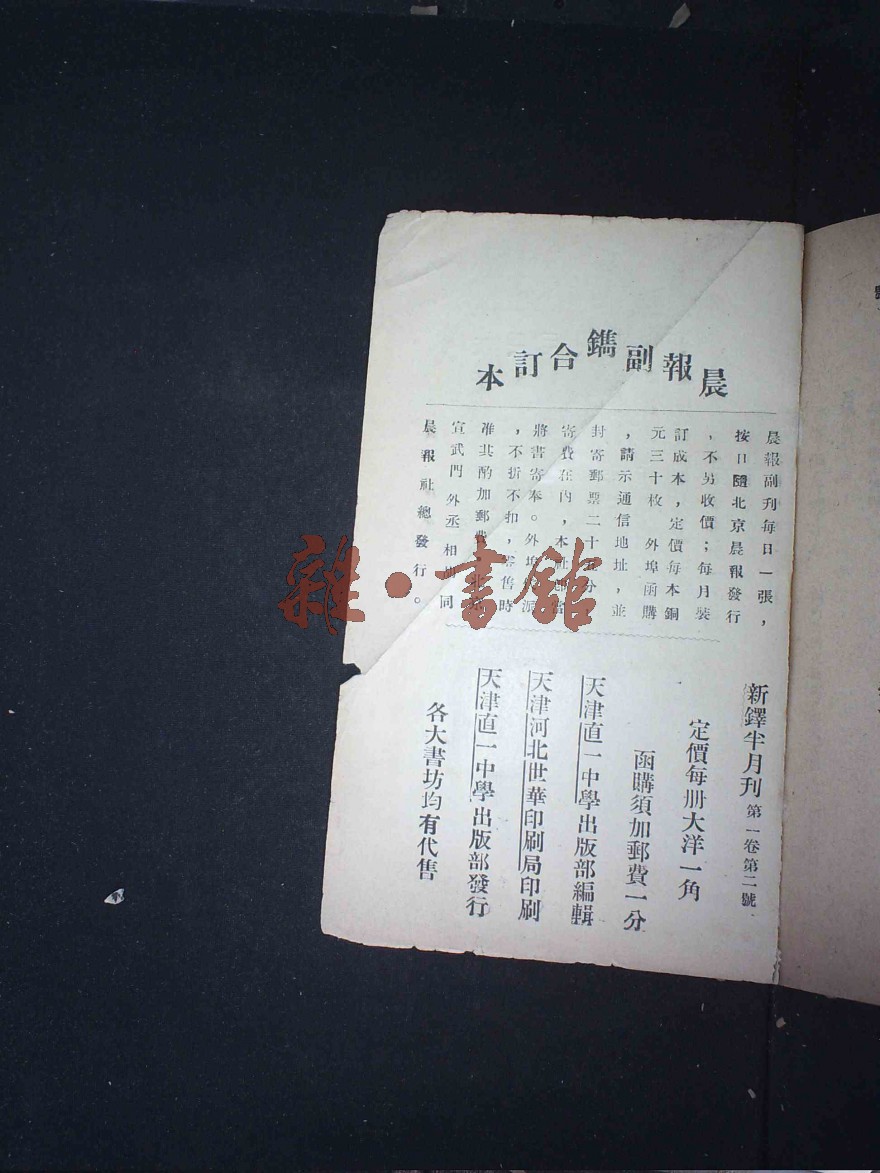 晨報副鐫合訂本
晨報副刊每日一張，
按日隨北京晨報發行
，不另收價；每月裝
訂成本，定價每本銅
元三十枚 外埠函購
，請示通信地址，並
封寄郵票二十分
寄費在內，本社
將書寄奉。外埠派
，不折不扣，售時
准其酌加郵費
宣武門外丞相 同
晨報社總發行。
新鐸半月刊 第一卷第二號
定價每册大洋一角
函購須加郵費一分
天津直一中學出版部編輯
天津河北世華印刷局印刷
天津直一中學出版部發行
各大書坊均有代售
雜·書館